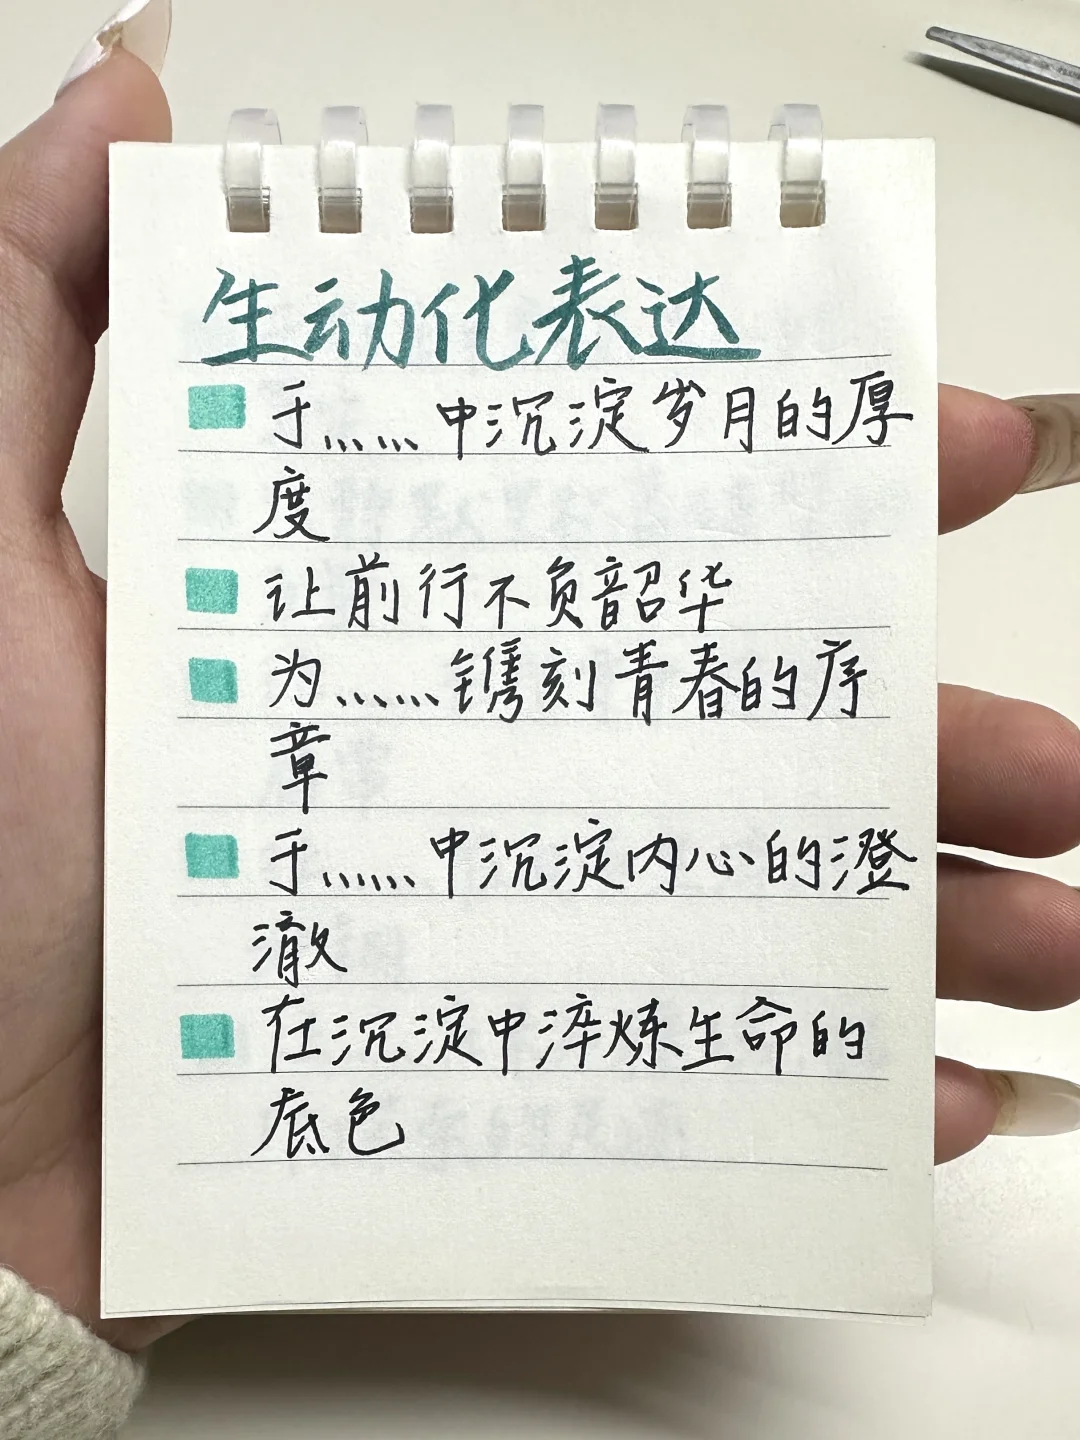 生动化表达
于......中沉淀岁月的厚
度
让前行不负韶华
为......镌刻青春的序
章
于......中沉淀内心的澄
澈
在沉淀中淬炼生命的
底色